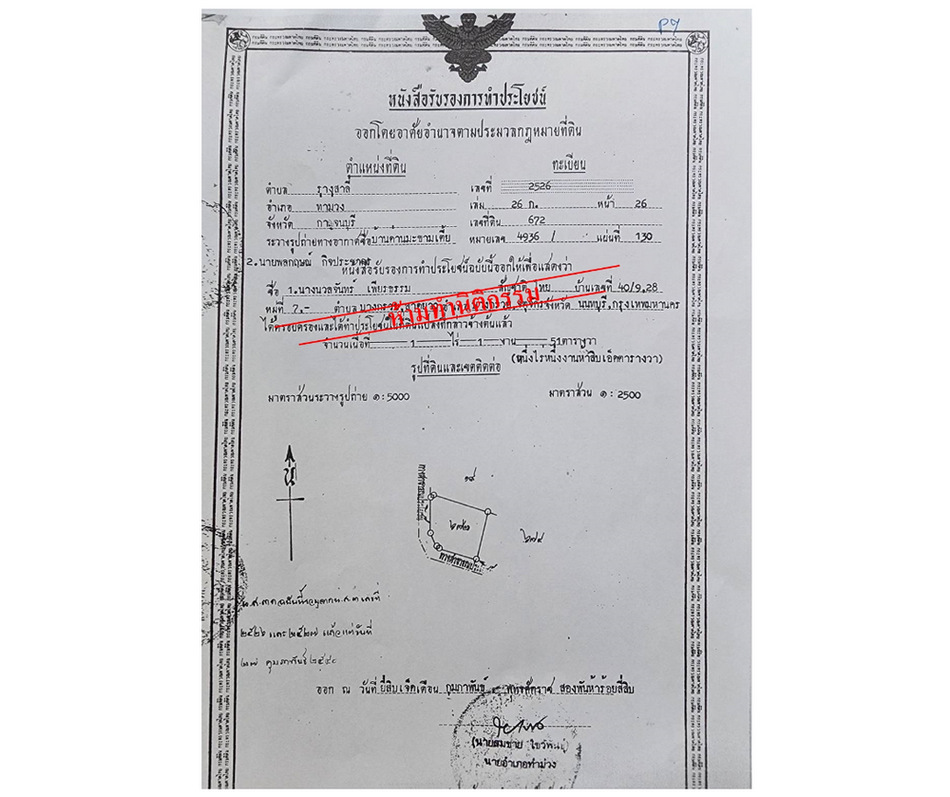 P9
หนังสือรับรองการทำประโยชน์
ออกโดยอาศัยอำนาจตามประมวลกฎหมายที่ดิน
ตำแหน่งที่ดิน ทะเบียน
ตำบล รางสาลี่ เลขที่ 2526
อำเภอ ท่ามวง เล่ม 26 ก. หน้า 26
จังหวัด กาญจนบุรี เลขที่ดิน 672
ระวางรูปถ่ายทางอากาศชื่อบ้านด่านมะขามเตี้ย หมายเลข 4936 / แผ่นที่ 130
2.นายพลกฤษณ์ กิจประชากร
หนังสือรับรองการทำประโยชน์ฉบับนี้ออกให้เพื่อแสดงว่า
ชื่อ 1.นางนวลจันทร์ เพียรธรรม สัญชาติ ไทย บ้านเลขที่ 40/9,28
หมู่ที่ 7.- ตำบล จังหวัด นนทบุรี.กรุงเทพมหานคร
ห้ามทำนิติกรรม
ได้ครอบครองและได้ทำประโยชน์ในที่ดินแปลงที่กล่าวข้างต้นแล้ว
จำนวนเนื้อที่ 1 ไร่ 1 งาน 51 ตารางวา
(หนึ่งไร่หนึ่งงานห้าสิบเอ็ดตารางวา)
รูปที่ดินและเขตติดต่อ
มาตราส่วนระวางรูปถ่าย ๑:5000 มาตราส่วน ๑ : 2500
น
ทางสาธารณประโยชน์
๒๗๔
น.ส.๓ ก.ฉบับนี้
๒๕๒๖ และ ๒๕๒๗ แล้วแต่วันที่
๒๗ กุมภาพันธ์ ๒๕๔๐
ออก ณ วันที่ ยี่สิบเจ็ด เดือน กุมภาพันธ์ พุทธศักราช สองพันห้าร้อยสี่สิบ
(นายสมชาย ไชวพันธุ์)
นายอำเภอท่าม่วง